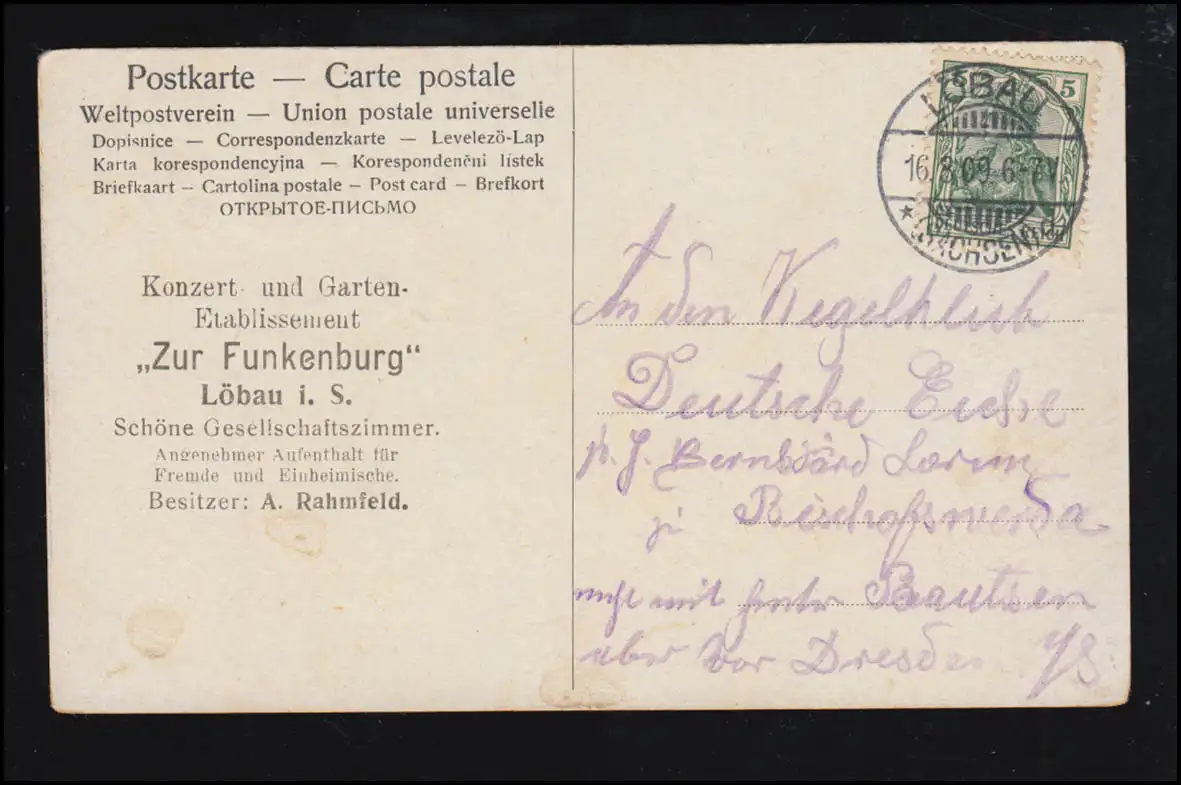 Postkarte — Carte postale
Weltpostverein — Union postale universelle
Dopisnice — Correspondenzkarte — Levelezö-Lap
Karta korespondencyjna — Korespondenčni lístek
Briefkaart — Cartolina postale — Post card — Brefkort
ОТКРЫТОЕ-ПИСЬМО
Konzert- und Garten-
Etablissement
„Zur Funkenburg“
Löbau i. S.
Schöne Gesellschaftszimmer.
Angenehmer Aufenthalt für
Fremde und Einheimische.
Besitzer: A. Rahmfeld.
5
LÖBAU
16.8.09.6-7V.
* (SACHSEN)
An den Kegelklub
Deutsche Eiche
Bernhard
zu Bischofswerda
mit hinter Bautzen
aber vor Dresden